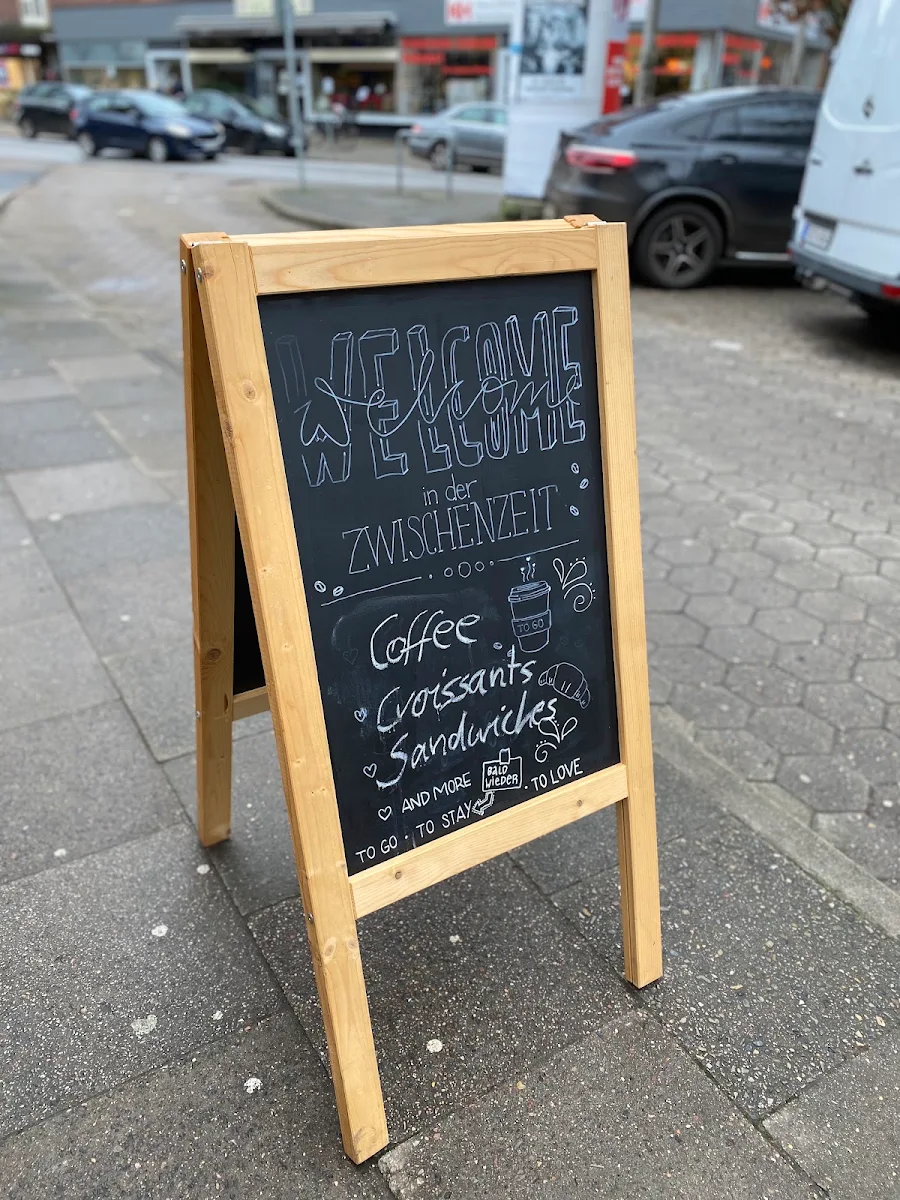 WELCOME
Welcome
in der
ZWISCHENZEIT
TO GO
Coffee
Croissants
Sandwiches
AND MORE
BALD
WIEDER
TO GO · TO STAY · TO LOVE